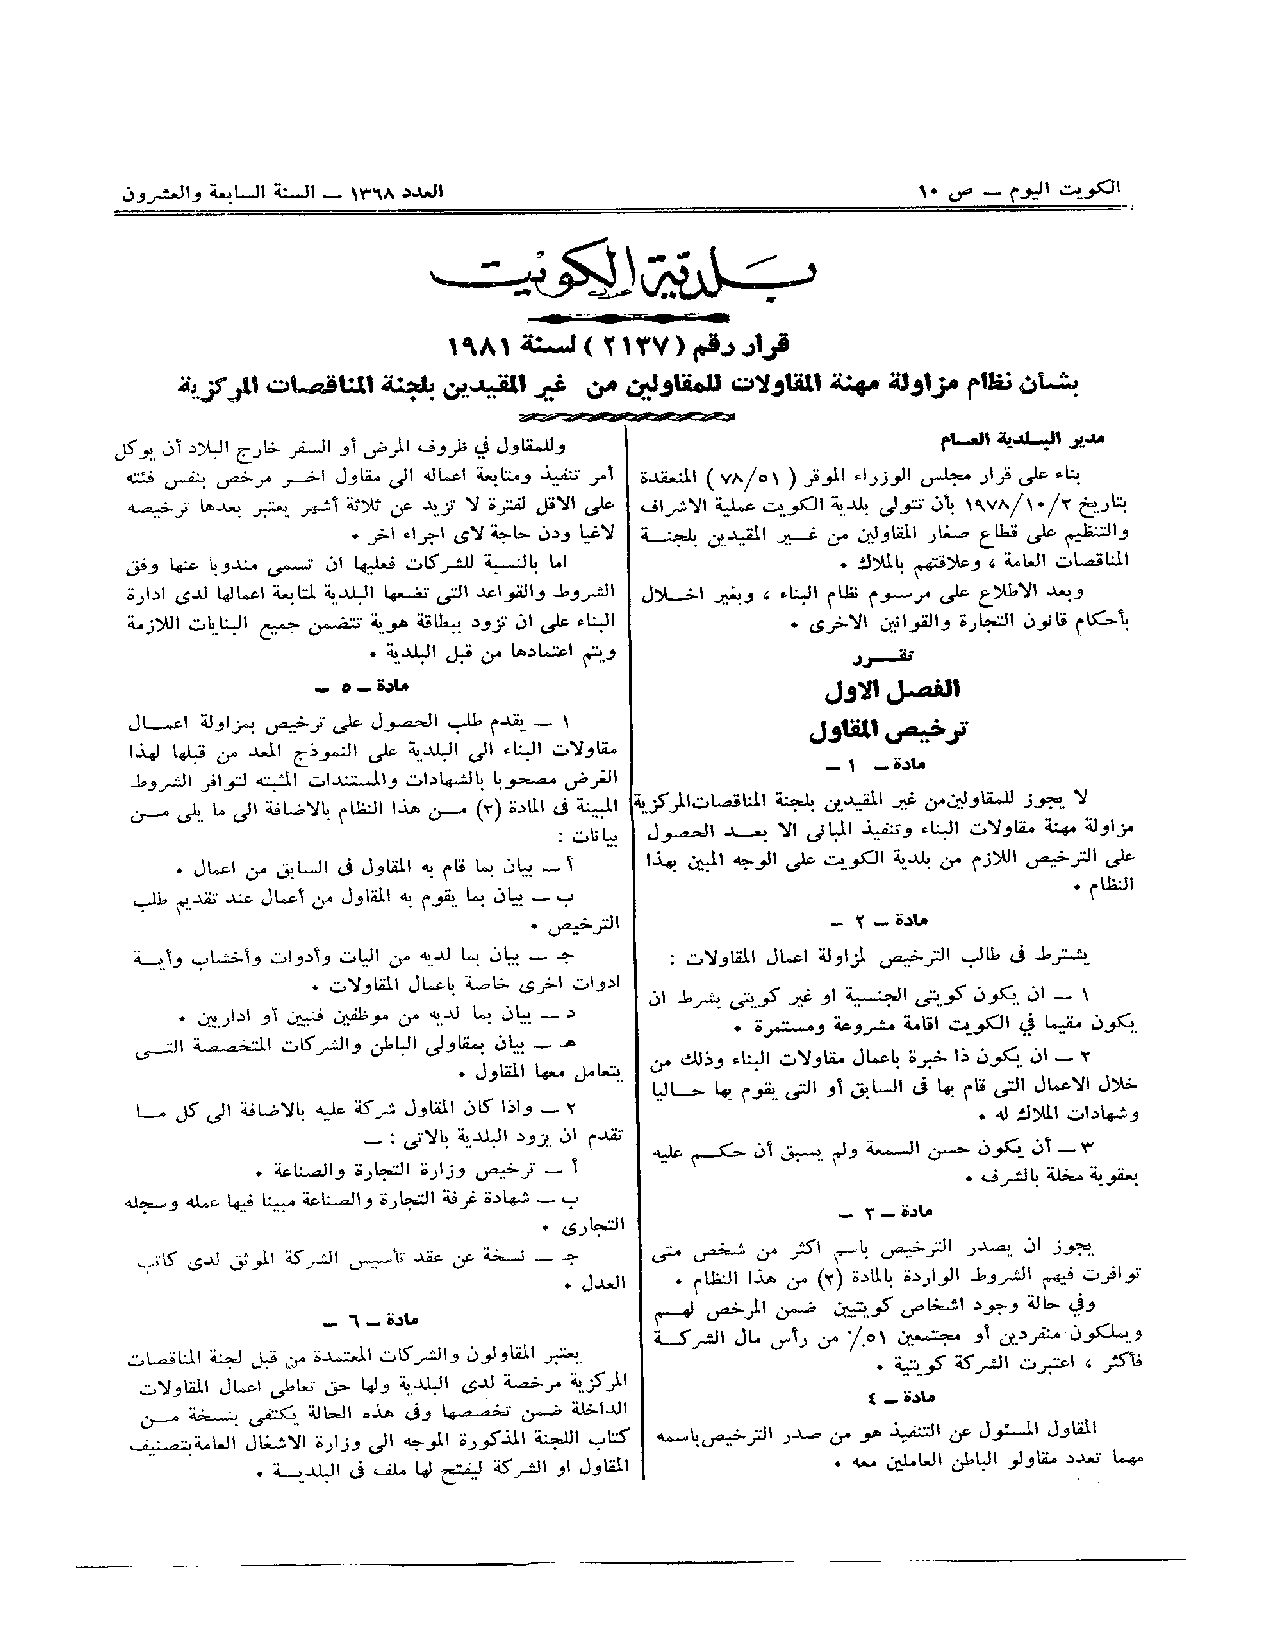 الكويت اليوم — ص ١٠
العدد ١٣٦٨ — السنة السابعة والعشرون
بلدية الكويت
قرار رقم (٢١٣٧) لسنة ١٩٨١
بشأن نظام مزاولة مهنة المقاولات للمقاولين من غير المقيدين بلجنة المناقصات المركزية
مدير البلدية العام
بناء على قرار مجلس الوزراء الموقر (٧٨/٥١) المنعقدة
بتاريخ ١٩٧٨/١٠/٢ بأن تتولى بلدية الكويت عملية الاشراف
والتنظيم على قطاع صغار المقاولين من غير المقيدين بلجنة
المناقصات العامة ، وعلاقتهم بالملاك .
وبعد الاطلاع على مرسوم نظام البناء ، وبغير اخلال
بأحكام قانون التجارة والقوانين الاخرى .
تقرر
الفصل الاول
ترخيص المقاول
مادة — ١ —
لا يجوز للمقاولين من غير المقيدين بلجنة المناقصات المركزية
مزاولة مهنة مقاولات البناء وتنفيذ المبانى الا بعد الحصول
على الترخيص اللازم من بلدية الكويت على الوجه المبين بهذا
النظام .
مادة — ٢ —
يشترط فى طالب الترخيص لمزاولة اعمال المقاولات :
١ — ان يكون كويتى الجنسية او غير كويتى بشرط ان
يكون مقيما في الكويت اقامة مشروعة ومستمرة .
٢ — ان يكون ذا خبرة باعمال مقاولات البناء وذلك من
خلال الاعمال التى قام بها فى السابق أو التى يقوم بها حاليا
وشهادات الملاك له .
٣ — أن يكون حسن السمعة ولم يسبق أن حكم عليه
بعقوبة مخلة بالشرف .
مادة — ٣ —
يجوز ان يصدر الترخيص باسم اكثر من شخص متى
توافرت فيهم الشروط الواردة بالمادة (٢) من هذا النظام .
وفي حالة وجود اشخاص كويتيين ضمن المرخص لهم
ويملكون منفردين أو مجتمعين ٥١٪ من رأس مال الشركة
فأكثر ، اعتبرت الشركة كويتية .
مادة — ٤
المقاول المسئول عن التنفيذ هو من صدر الترخيص باسمه
مهما تعدد مقاولو الباطن العاملين معه .
وللمقاول في ظروف المرض أو السفر خارج البلاد أن يوكل
أمر تنفيذ ومتابعة اعماله الى مقاول اخر مرخص بنفس فئته
على الاقل لفترة لا تزيد عن ثلاثة أشهر يعتبر بعدها ترخيصه
لاغيا ودن حاجة لاى اجراء اخر .
اما بالنسبة للشركات فعليها ان تسمى مندوبا عنها وفق
الشروط والقواعد التى تضعها البلدية لمتابعة اعمالها لدى ادارة
البناء على ان تزود ببطاقة هوية تتضمن جميع البنايات اللازمة
ويتم اعتمادها من قبل البلدية .
مادة — ٥ —
١ — يقدم طلب الحصول على ترخيص بمزاولة اعمال
مقاولات البناء الى البلدية على النموذج المعد من قبلها لهذا
الغرض مصحوبا بالشهادات والمستندات المثبته لتوافر الشروط
المبينة فى المادة (٢) من هذا النظام بالاضافة الى ما يلى من
بيانات :
أ — بيان بما قام به المقاول فى السابق من اعمال .
ب — بيان بما يقوم به المقاول من أعمال عند تقديم طلب
الترخيص .
جـ — بيان بما لديه من اليات وأدوات وأخشاب وأية
ادوات اخرى خاصة باعمال المقاولات .
د — بيان بما لديه من موظفين فنيين أو اداريين .
هـ — بيان بمقاولى الباطن والشركات المتخصصة التى
يتعامل معها المقاول .
٢ — واذا كان المقاول شركة عليه بالاضافة الى كل ما
تقدم ان يزود البلدية بالاتى : —
أ — ترخيص وزارة التجارة والصناعة .
ب — شهادة غرفة التجارة والصناعة مبينا فيها عمله وسجله
التجارى .
جـ — نسخة عن عقد تأسيس الشركة الموثق لدى كاتب
العدل .
مادة — ٦ —
يعتبر المقاولون والشركات المعتمدة من قبل لجنة المناقصات
المركزية مرخصة لدى البلدية ولها حق تعاطى اعمال المقاولات
الداخلة ضمن تخصصها وفى هذه الحالة يكتفى بنسخة من
كتاب اللجنة المذكورة الموجه الى وزارة الاشغال العامة بتصنيف
المقاول او الشركة ليفتح لها ملف فى البلدية .